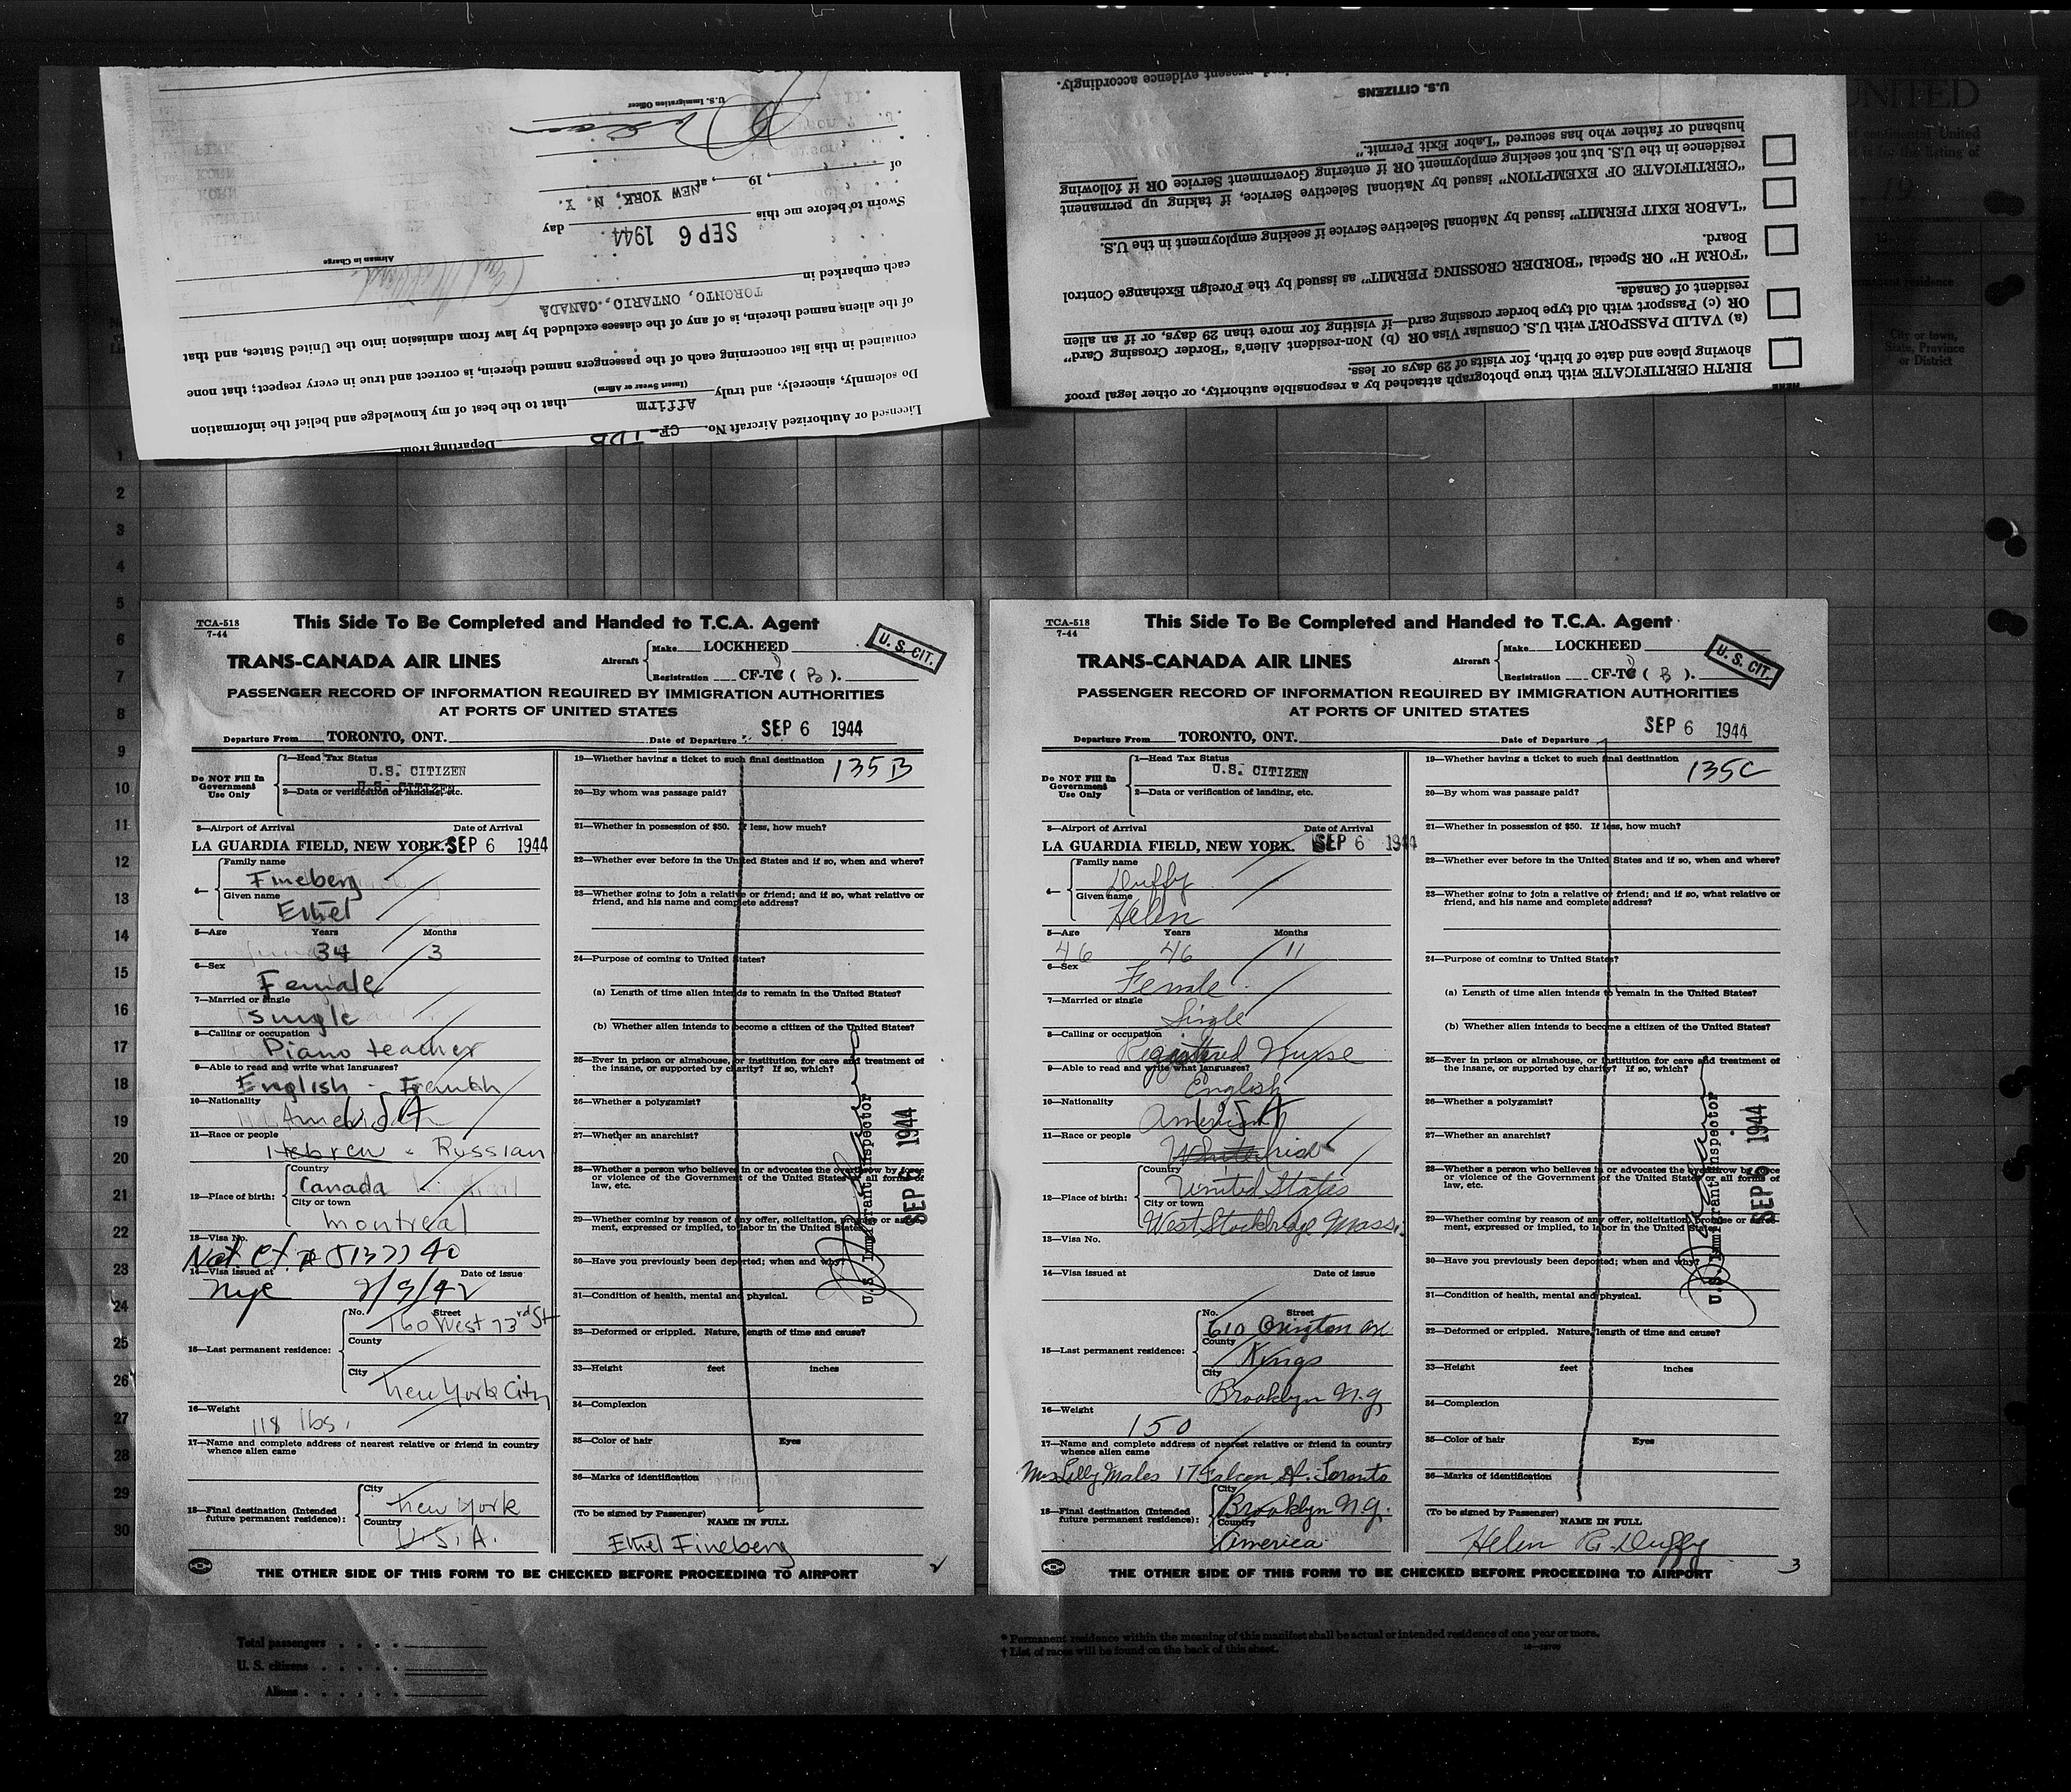 Licensed or Authorized Aircraft No. CF-TDB Departing from
Do solemnly, sincerely, and truly Affirm that to the best of my knowledge and belief the information
(Insert Swear or Affirm)
contained in this list concerning each of the passengers named therein, is correct and true in every respect; that none
of the aliens named therein, is of any of the classes excluded by law from admission into the United States, and that
each embarked in TORONTO, ONTARIO, CANADA
Airman in Charge
Sworn to before me this SEP 6 1944 day
of , 19 , at NEW YORK, N. Y.
U.S. Immigration Officer
HERE
BIRTH CERTIFICATE with true photograph attached by a responsible authority, or other legal proof
showing place and date of birth, for visits of 29 days or less.
(a) VALID PASSPORT with U.S. Consular Visa OR (b) Non-resident Alien's "Border Crossing Card"
OR (c) Passport with old type border crossing card—if visiting for more than 29 days, or if an alien
resident of Canada.
"FORM H" OR Special "BORDER CROSSING PERMIT" as issued by the Foreign Exchange Control
Board.
"LABOR EXIT PERMIT" issued by National Selective Service if seeking employment in the U.S.
"CERTIFICATE OF EXEMPTION" issued by National Selective Service, if taking up permanent
residence in the U.S. but not seeking employment OR if entering Government Service OR if following
husband or father who has secured "Labor Exit Permit."
U.S. CITIZENS
present evidence accordingly.
UNITED
continental United
listing of
19
residence
City or town,
State, Province
or District
1
2
3
4
5
6
7
8
9
10
11
12
13
14
15
16
17
18
19
20
21
22
23
24
25
26
27
28
29
30
TCA-518
7-44
This Side To Be Completed and Handed to T.C.A. Agent
U. S. CIT.
TRANS-CANADA AIR LINES
Aircraft
Make LOCKHEED
Registration CF-TC ( B ).
PASSENGER RECORD OF INFORMATION REQUIRED BY IMMIGRATION AUTHORITIES
AT PORTS OF UNITED STATES
Departure From TORONTO, ONT. Date of Departure SEP 6 1944
Do NOT Fill In
Government
Use Only
1—Head Tax Status
U.S. CITIZEN
U.S. CITIZEN
2—Data or verification of landing, etc.
3—Airport of Arrival Date of Arrival
LA GUARDIA FIELD, NEW YORK. SEP 6 1944
4—
Family name
Fineberg
Given name
Ethel
5—Age Years Months
34 3
6—Sex
Female
7—Married or single
Single
8—Calling or occupation
Piano teacher
9—Able to read and write what languages?
English - French
10—Nationality
American USA
11—Race or people
Hebrew - Russian
12—Place of birth:
Country
Canada
City or town
Montreal
13—Visa No.
Nat. Ct. # 5137740
14—Visa issued at Date of issue
Nyc 2/9/42
15—Last permanent residence:
No. Street
160 West 73rd St
County
City
New York City
16—Weight
118 lbs.
17—Name and complete address of nearest relative or friend in country
whence alien came
18—Final destination (Intended
future permanent residence):
City
New York
Country
U.S.A.
19—Whether having a ticket to such final destination
135B
20—By whom was passage paid?
21—Whether in possession of $50. If less, how much?
22—Whether ever before in the United States and if so, when and where?
23—Whether going to join a relative or friend; and if so, what relative or
friend, and his name and complete address?
24—Purpose of coming to United States?
(a) Length of time alien intends to remain in the United States?
(b) Whether alien intends to become a citizen of the United States?
25—Ever in prison or almshouse, or institution for care and treatment of
the insane, or supported by charity? If so, which?
26—Whether a polygamist?
27—Whether an anarchist?
28—Whether a person who believes in or advocates the overthrow by force
or violence of the Government of the United States or all forms of
law, etc.
29—Whether coming by reason of any offer, solicitation, promise or agree-
ment, expressed or implied, to labor in the United States?
30—Have you previously been deported; when and why?
31—Condition of health, mental and physical.
32—Deformed or crippled. Nature, length of time and cause?
33—Height feet inches
34—Complexion
35—Color of hair Eyes
36—Marks of identification
(To be signed by Passenger)
NAME IN FULL
Ethel Fineberg
U.S. Immigrant Inspector
SEP 6 1944
THE OTHER SIDE OF THIS FORM TO BE CHECKED BEFORE PROCEEDING TO AIRPORT
2
TCA-518
7-44
This Side To Be Completed and Handed to T.C.A. Agent
U. S. CIT.
TRANS-CANADA AIR LINES
Aircraft
Make LOCKHEED
Registration CF-TC ( B ).
PASSENGER RECORD OF INFORMATION REQUIRED BY IMMIGRATION AUTHORITIES
AT PORTS OF UNITED STATES
Departure From TORONTO, ONT. Date of Departure SEP 6 1944
Do NOT Fill In
Government
Use Only
1—Head Tax Status
U.S. CITIZEN
2—Data or verification of landing, etc.
3—Airport of Arrival Date of Arrival
LA GUARDIA FIELD, NEW YORK. SEP 6 1944
4—
Family name
Duffy
Given name
Helen
5—Age Years Months
46 46 11
6—Sex
Female
7—Married or single
Single
8—Calling or occupation
Registered Nurse
9—Able to read and write what languages?
English
10—Nationality
American USA
11—Race or people
White Irish
12—Place of birth:
Country
United States
City or town
West Stockbridge Mass.
13—Visa No.
14—Visa issued at Date of issue
15—Last permanent residence:
No. Street
610 Ave
County
Kings
City
Brooklyn N.Y.
16—Weight
150
17—Name and complete address of nearest relative or friend in country
whence alien came
Mrs Lilly Males 17 Falcon St. Toronto
18—Final destination (Intended
future permanent residence):
City
Brooklyn N.Y.
Country
America
19—Whether having a ticket to such final destination
135C
20—By whom was passage paid?
21—Whether in possession of $50. If less, how much?
22—Whether ever before in the United States and if so, when and where?
23—Whether going to join a relative or friend; and if so, what relative or
friend, and his name and complete address?
24—Purpose of coming to United States?
(a) Length of time alien intends to remain in the United States?
(b) Whether alien intends to become a citizen of the United States?
25—Ever in prison or almshouse, or institution for care and treatment of
the insane, or supported by charity? If so, which?
26—Whether a polygamist?
27—Whether an anarchist?
28—Whether a person who believes in or advocates the overthrow by force
or violence of the Government of the United States or all forms of
law, etc.
29—Whether coming by reason of any offer, solicitation, promise or agree-
ment, expressed or implied, to labor in the United States?
30—Have you previously been deported; when and why?
31—Condition of health, mental and physical.
32—Deformed or crippled. Nature, length of time and cause?
33—Height feet inches
34—Complexion
35—Color of hair Eyes
36—Marks of identification
(To be signed by Passenger)
NAME IN FULL
Helen R. Duffy
U.S. Immigrant Inspector
SEP 6 1944
THE OTHER SIDE OF THIS FORM TO BE CHECKED BEFORE PROCEEDING TO AIRPORT
3
Total passengers
U. S. citizens
Aliens
* Permanent residence within the meaning of this manifest shall be actual or intended residence of one year or more.
† List of races will be found on the back of this sheet.